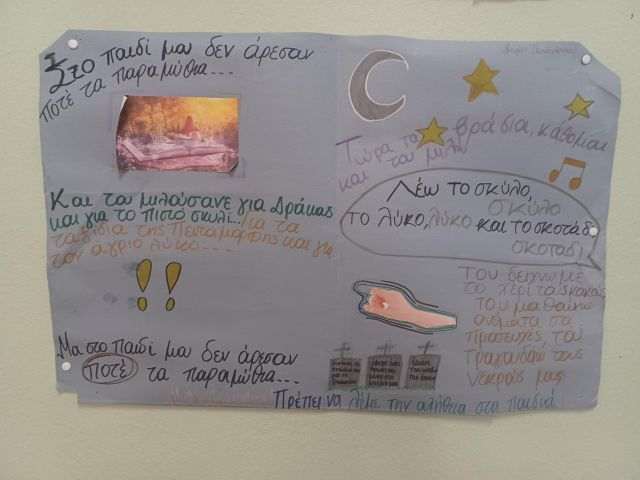 Στο παιδί μου δεν άρεσαν
ποτέ τα παραμύθια...
Και του μιλούσανε για Δράκους
και για το πιστό σκυλί... Για τα
ταξίδια της Πενταμορφης και για
τον άγριο λύκο....
!!
Μα στο παιδί μου δεν άρεσαν
ποτέ τα παραμύθια...
Τώρα τα βράδια, κάθομαι
και του μιλώ
Λέω το σκύλο, σκύλο
το λύκο, λύκο και το σκοτάδι
σκοτάδι
Του δείχνω με
το χέρι τους κακούς
Του μαθαίνω
ονόματα σα
προσευχές, του
τραγουδάω τους
νεκρούς μας
Πρέπει να λέμε την αλήθεια στα παιδιά